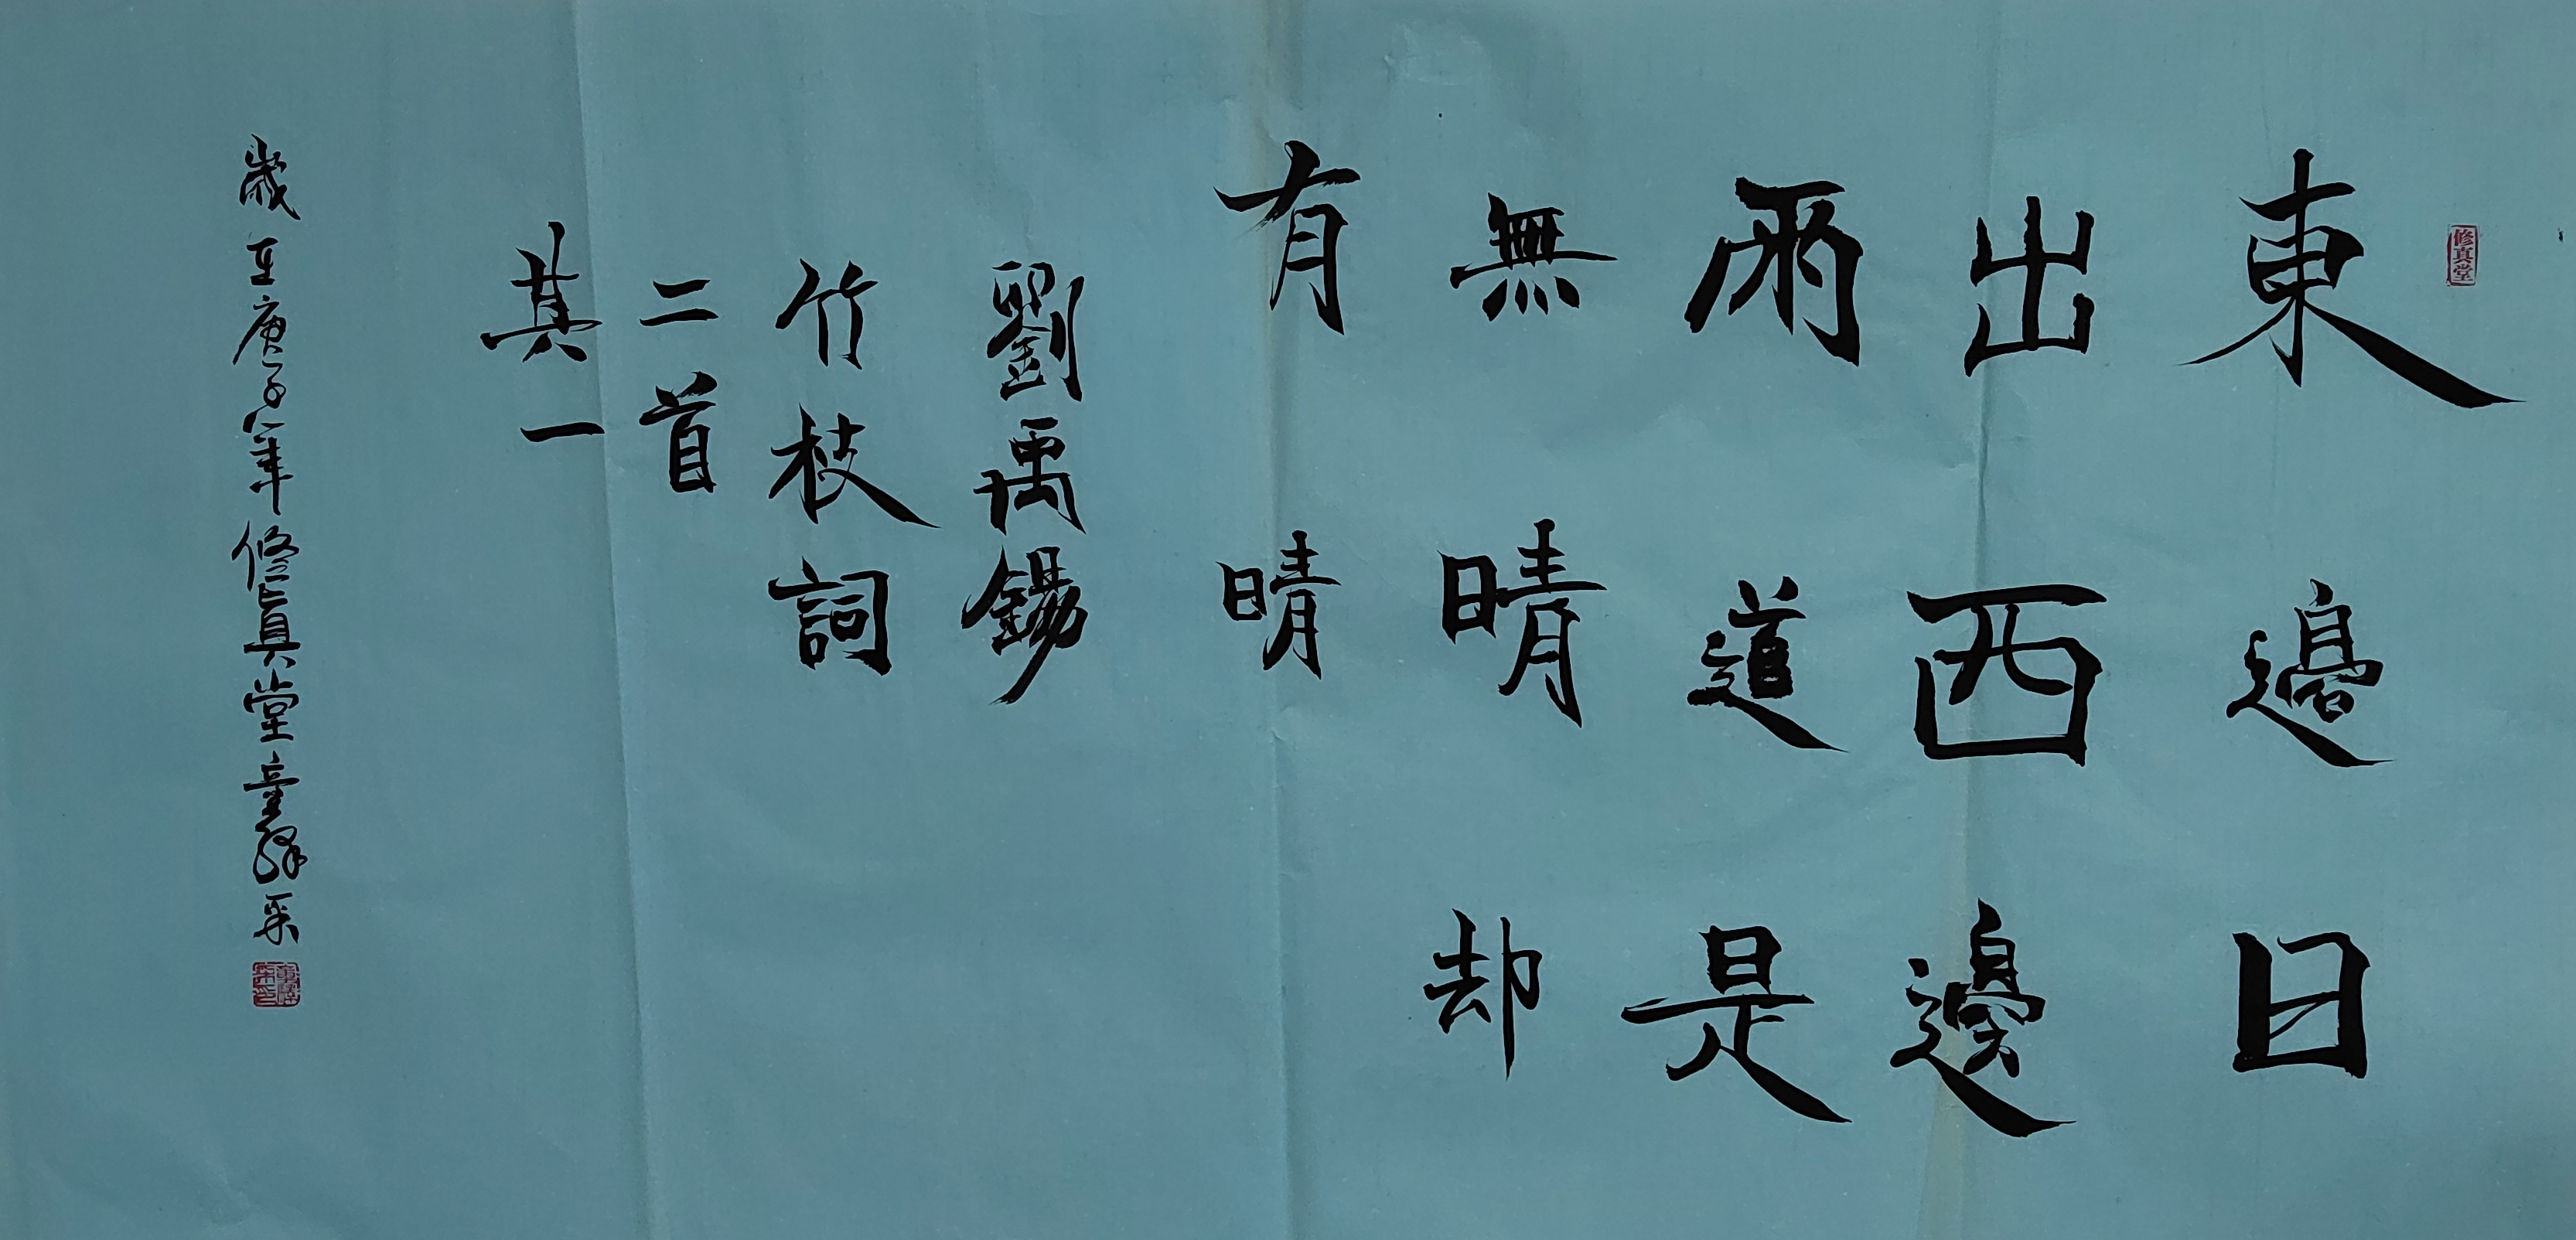 修真堂
東邊日
出西邊
雨道是
無晴却
有晴
劉禹錫
竹枝詞
二首
其一
歲在庚子年修真堂童驛采